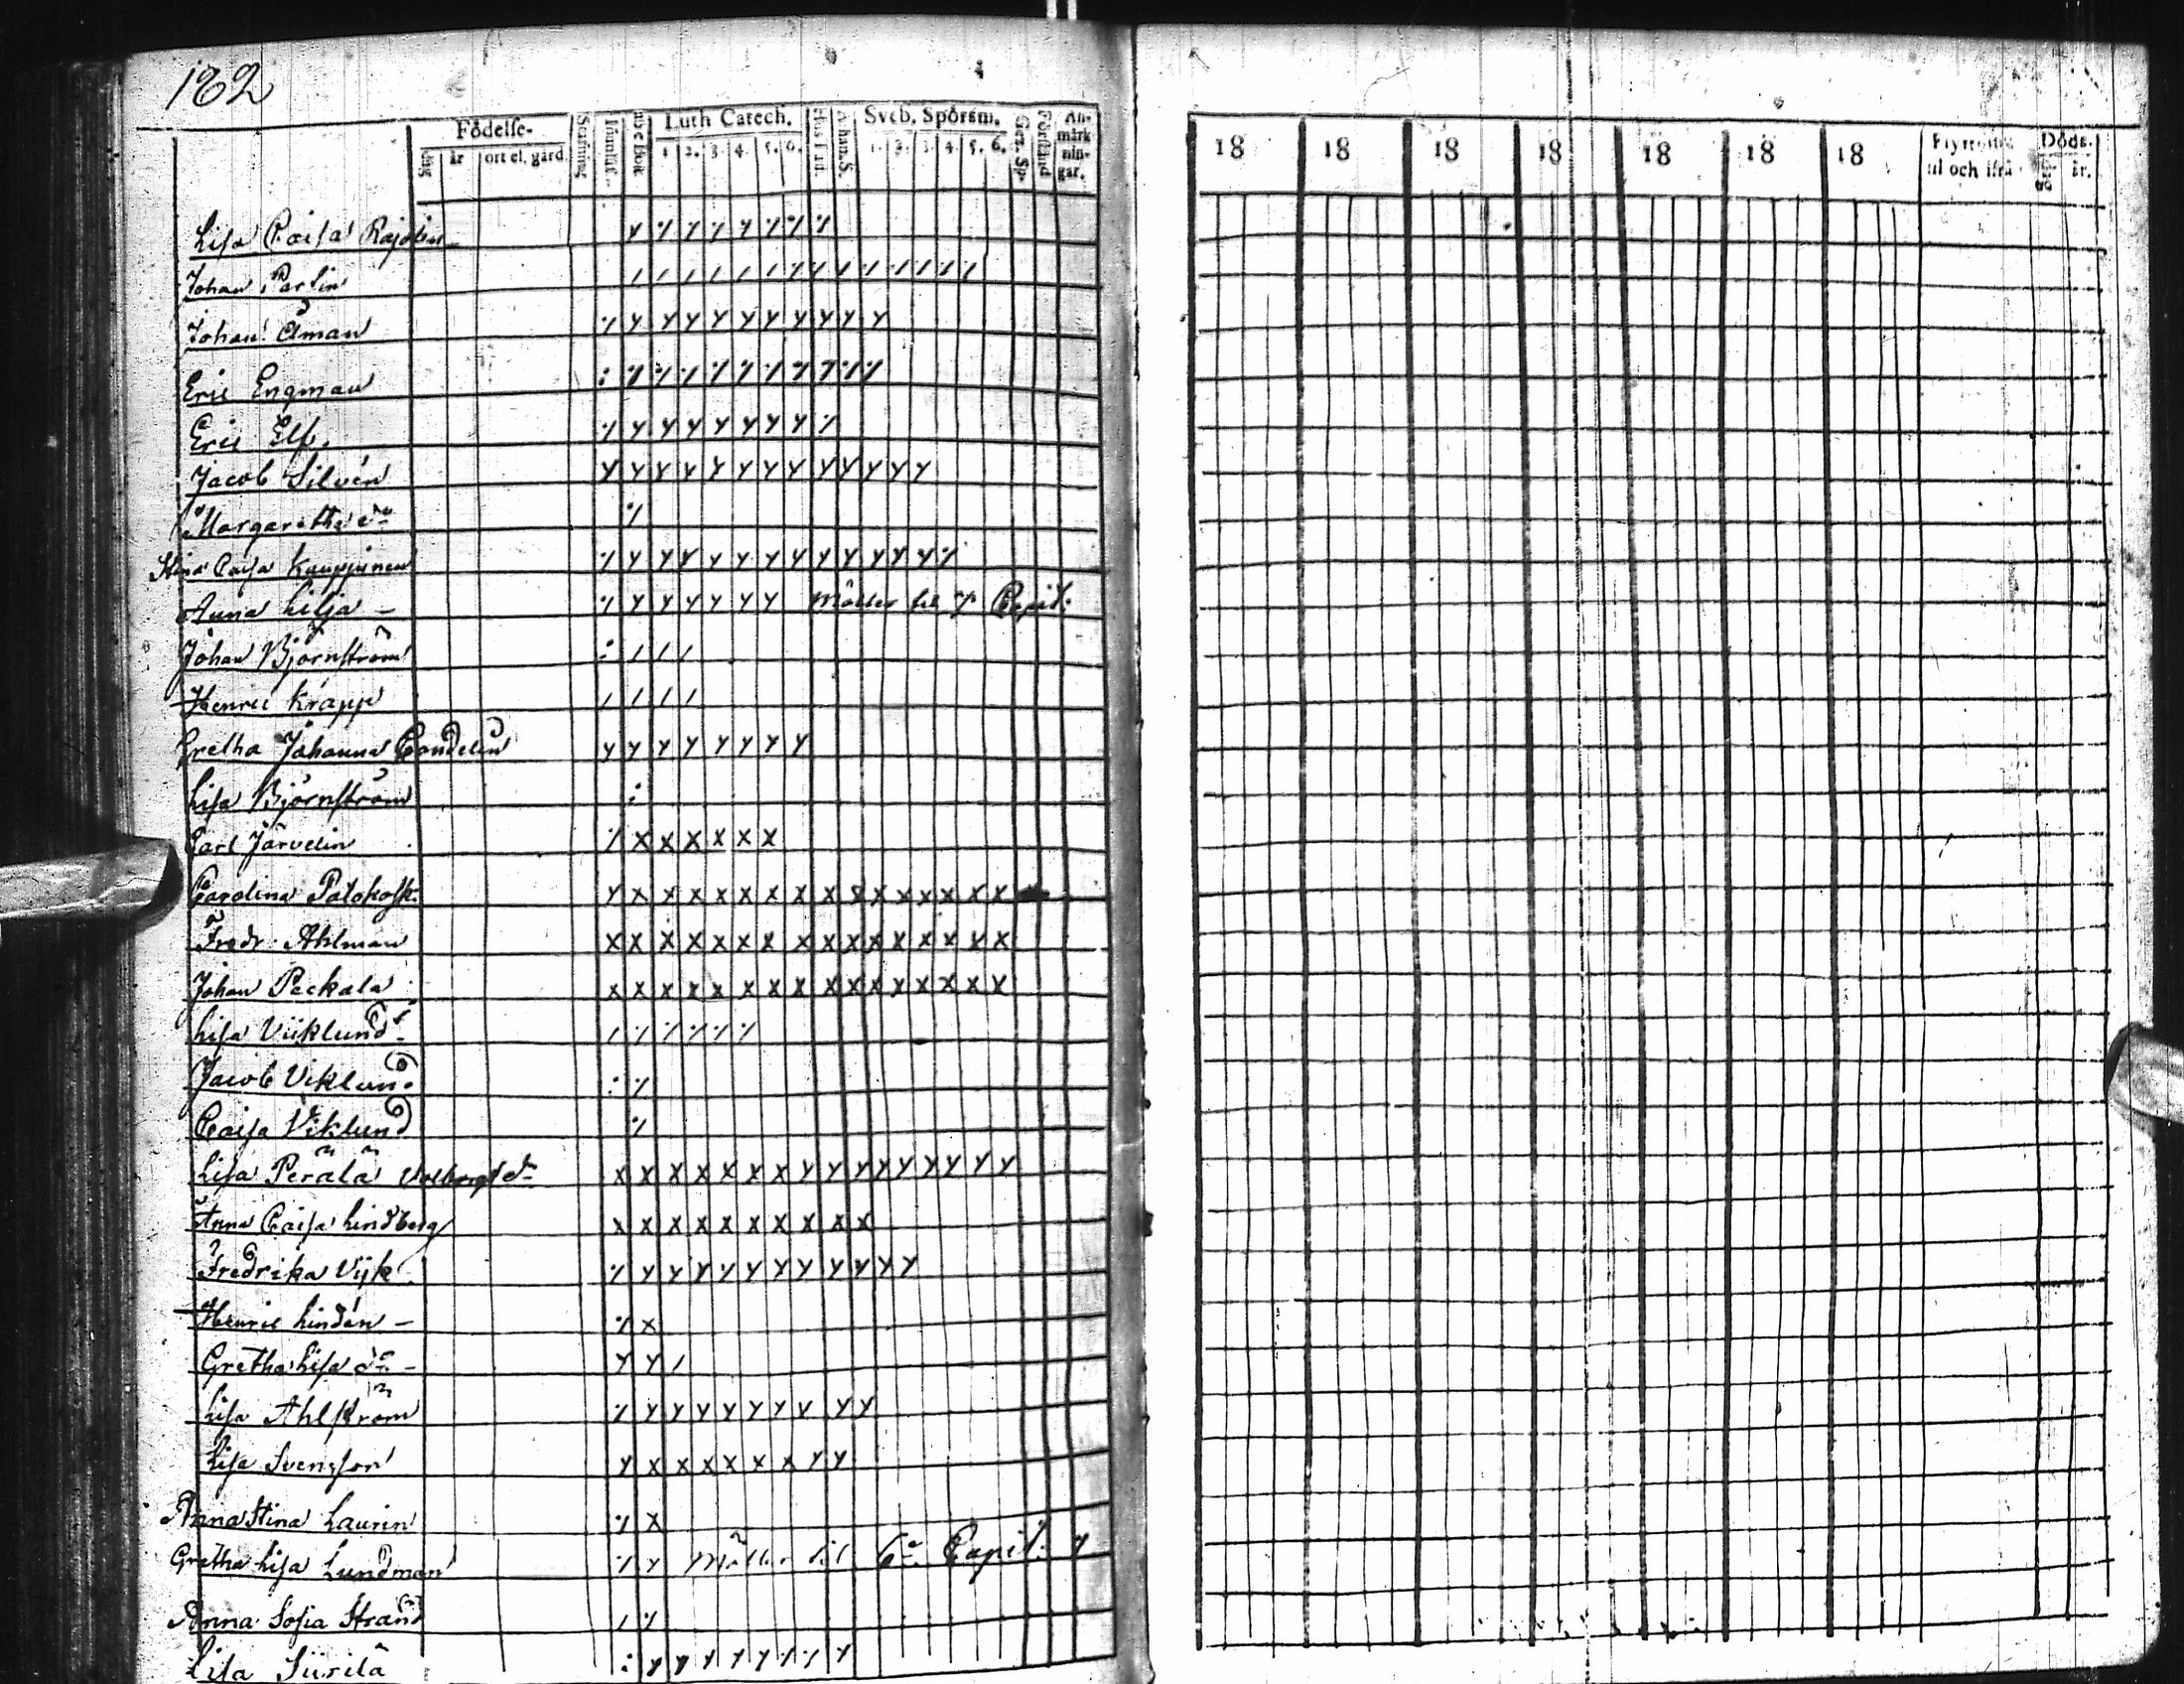 162
Födelse-
Luth Catech.
Sveb. Spörsm.
An-
märk
nin-
gar.
dag år ort el. gård.
Stafning
1. 2. 3. 4. 5. 6.
Hus Taf.
Athan. S.
1. 2. 3. 4. 5. 6.
Gen. Sp.
Förstånd
18 18 18 18 18 18 18
Flyttning
til och ifrå
Döds-
dag år.
Lisa Caisa Rajalin
Johan Parlin
Johan Åman
Eric Engman
Eric Elf.
Jacob Silvén
Margaretha do
Stina Caisa Kauppinen
Anna Lilja - Möller til 7 Capit.
Johan Björnström
Henric Krapp
Gretha Johanna Candelin
Lisa Björnström
Carl Järvelin
Carolina Palokosk.
Fredr. Ahlman
Johan Peckala
Lisa Viiklund
Jacob Viklund
Caisa Viklund
Lisa Perälä
Anna Caisa Lindberg
Fredrika Vijk
Henric Lindén -
Gretha Lisa do -
Lisa Ahlström
Lisa Svensson
Anna Stina Laurin
Gretha Lisa Lundman Möller til 6. Capit.
Anna Sofia Strand
Lisa Siirilä